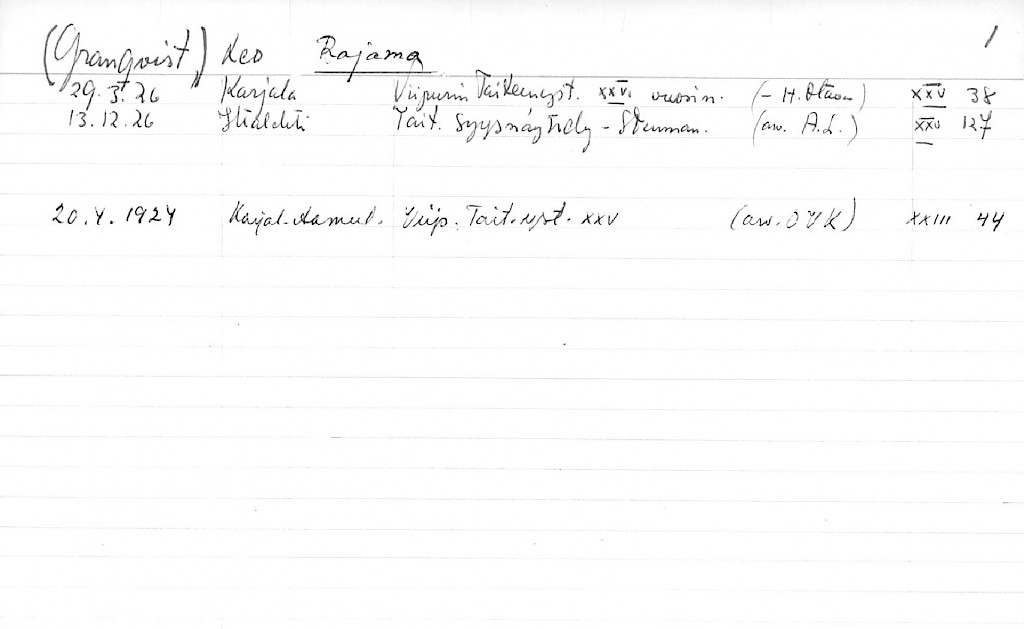 1
(Granqvist,) Leo Rajama
29.3.26 Karjala Viipurin Taiteenyst. XXV. vuosin. (– H. Otava) XXV 38
13.12.26 Iltalehti Tait. Syysnäyttely – Stenman. (arv. A.L.) XXV 127
20.4.1924 Karjal. Aamul. Viip. Tait. yst. XXV (arv. OVK) XXIII 44